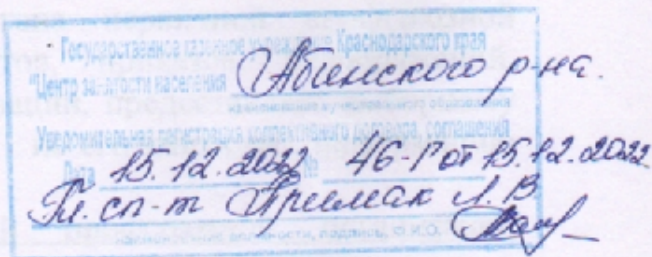 Государственное казенное учреждение Краснодарского края
"Центр занятости населения Абинского р-на.
наименование муниципального образования
Уведомительная регистрация коллективного договора, соглашения
Дата 15.12.2022 № 46-Р от 15.12.2022
Гл. сп-т Примак Л. В
наименование должности, подпись, Ф.И.О.